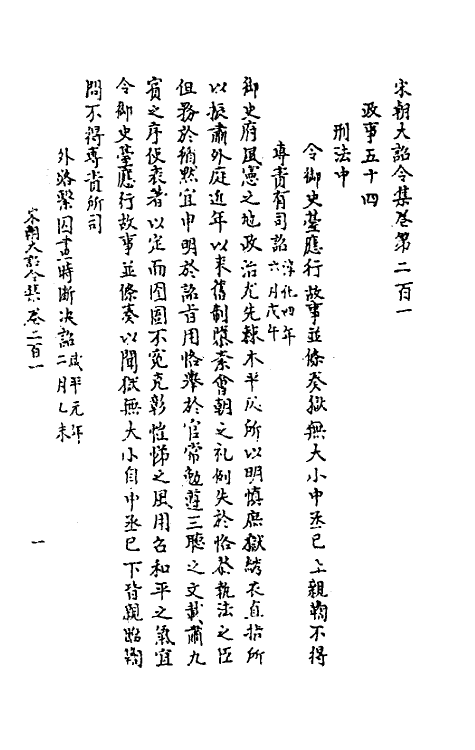 宋朝大詔令集卷第二百一
政事五十四
刑法中
令御史臺應行故事並條奏獄無大小中丞已上親鞫不得
專責有司詔淳化四年六月戊午
御史府風憲之地政治尤先棘木平反所以明慎庶獄繡衣直指所
以振肅外庭近年以來舊制隳紊會朝之礼例失於恪恭執法之臣
但務於循默宜申明於詔旨用恪舉於官常勉遵三聽之文載肅九
賓之序使表著以定而囹圄不寃克彰愷悌之風用召和平之氣宜
令御史臺應行故事並條奏以聞獄無大小自中丞已下皆親臨鞫
問不得專責所司
外路繫囚畫時斷決詔咸平元年二月乙未
宋朝大詔令集卷二百一
一